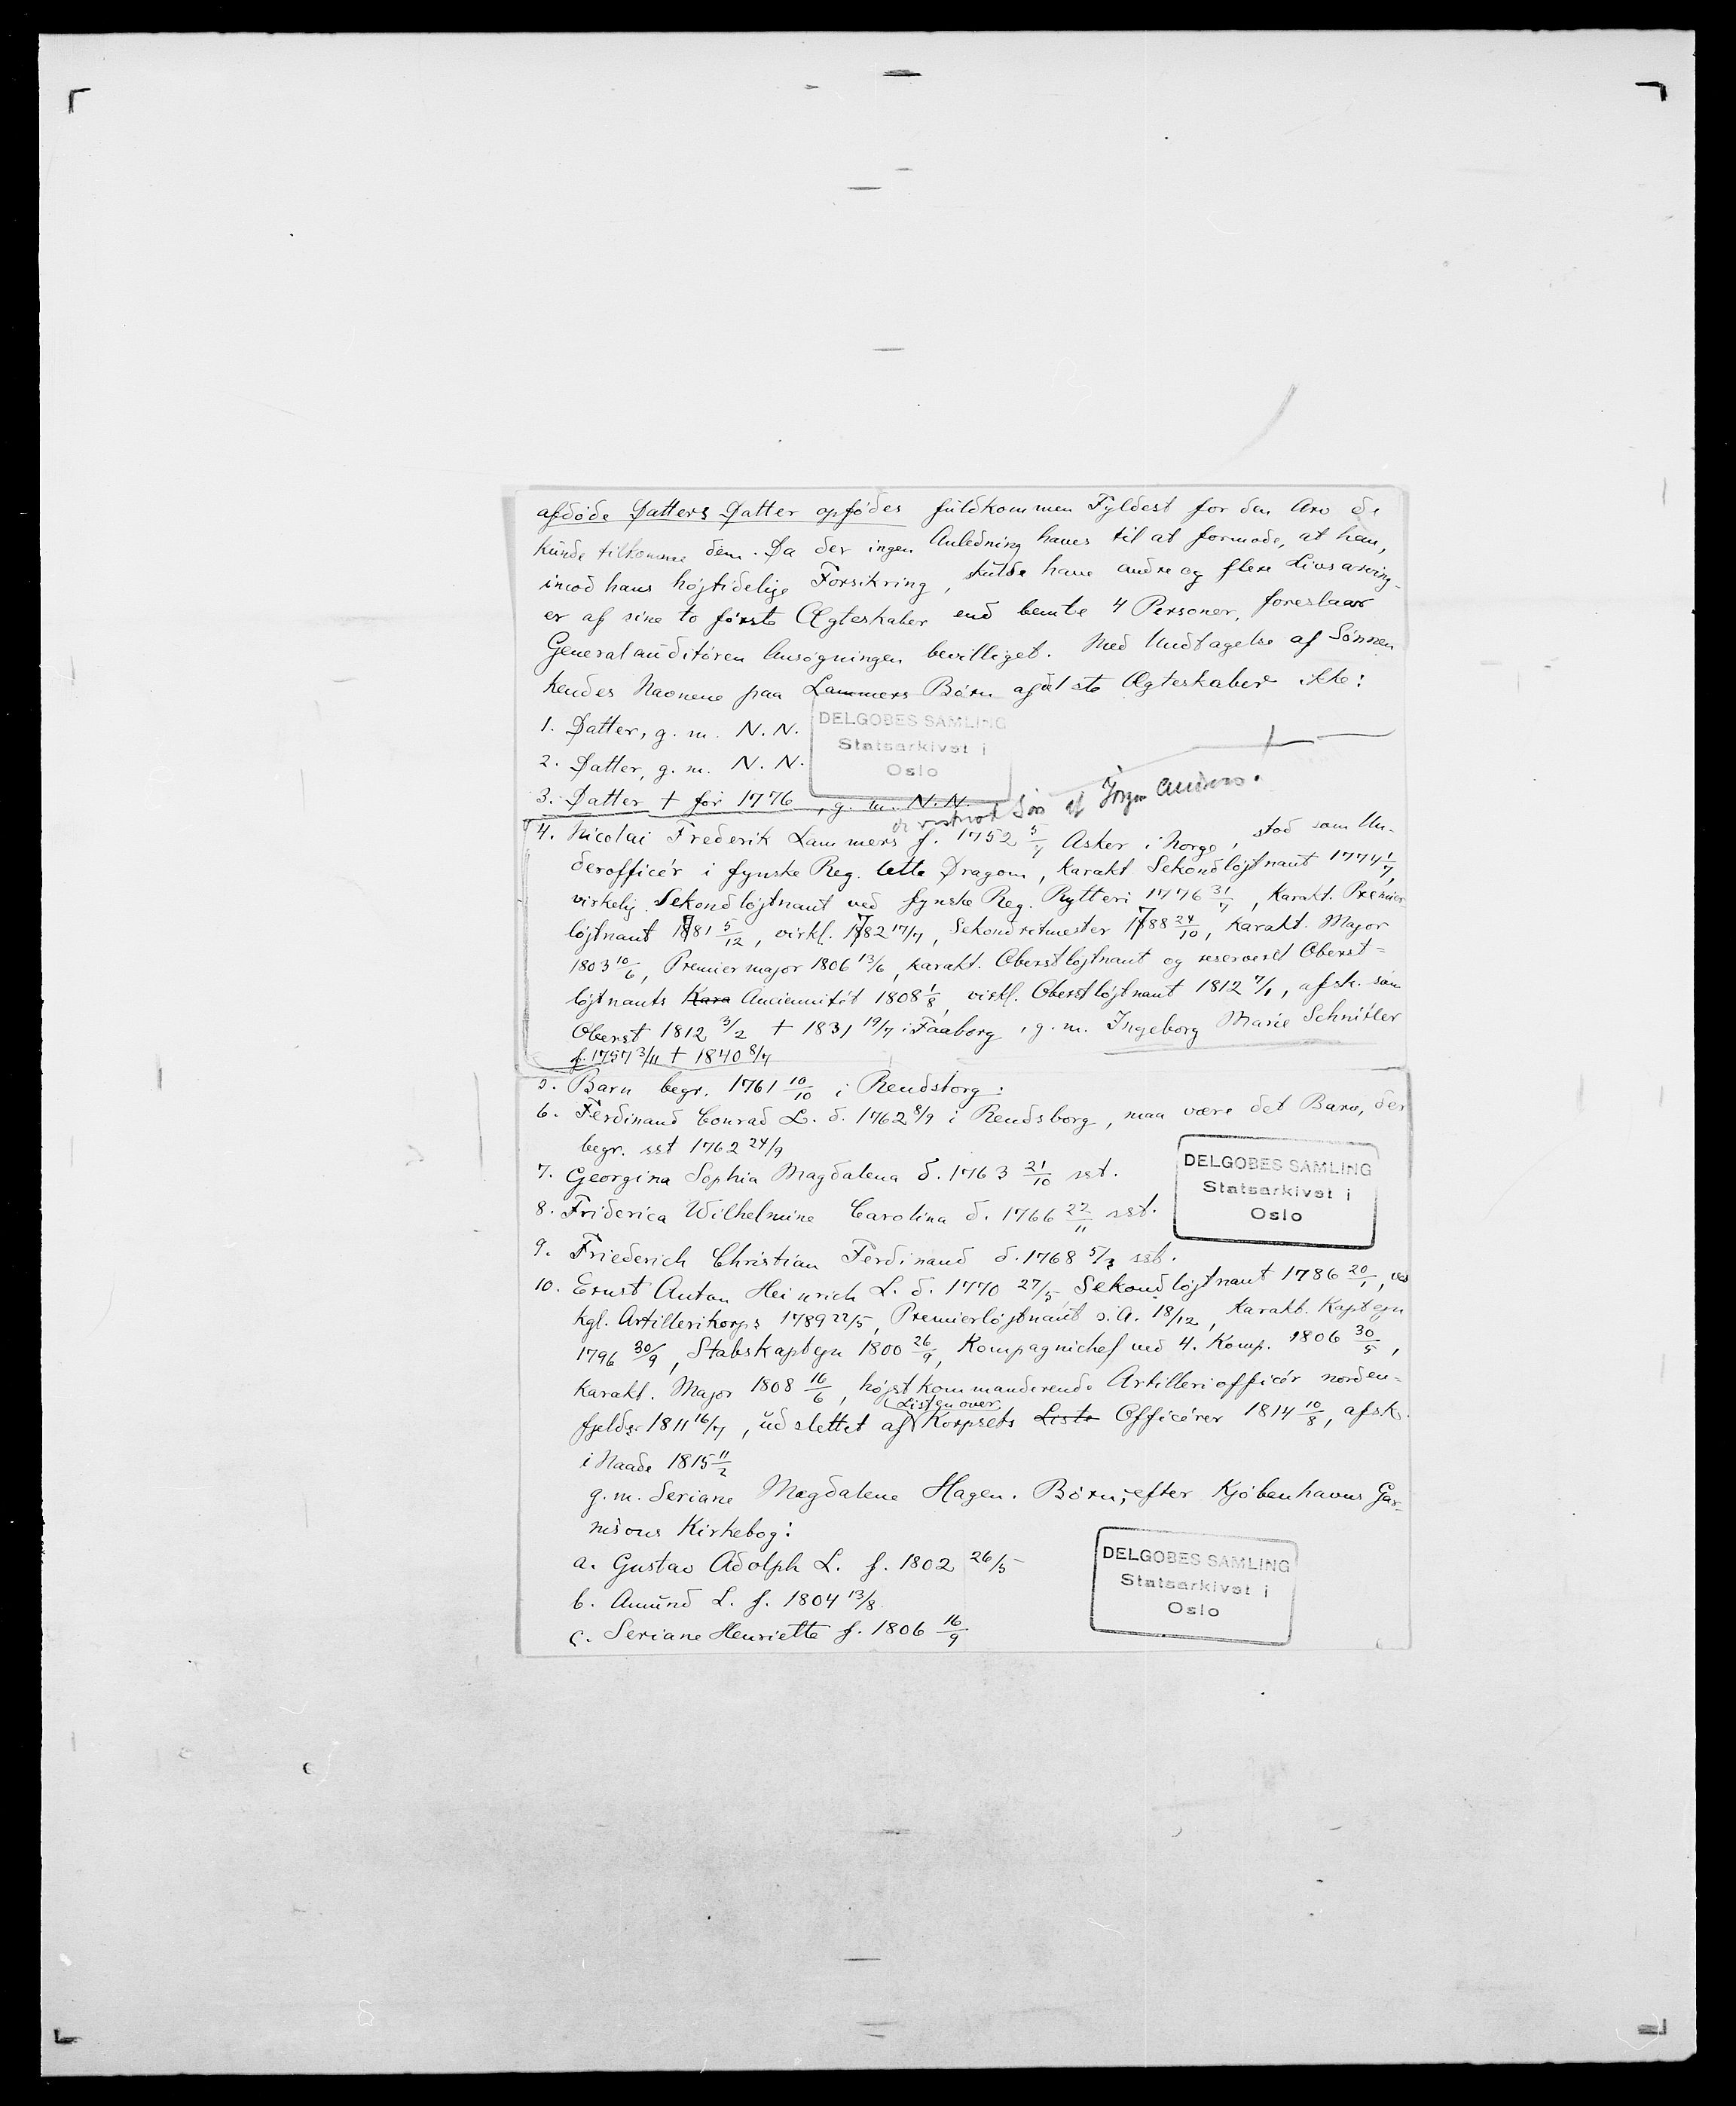 afdøde Datters Datter opfødes fuldkommen Fyldest for den Arv de
kunde tilkomme dem. Da der ingen Anledning haves til at formode, at han,
imod hans højtidelige Forsikring, skulde have andre og flere Livsarving-
er af sine to første Ægteskaber end bemte 4 Personer, foreslaar
Generalauditøren Ansøgningen bevilliget. Med Undtagelse af Sønnen
kendes Navnene paa Lammers Børn af Ægteskaber ikke:
1. Datter, g. m. N. N.
2. Datter, g. m. N. N.
DELGOBES SAMLING
Statsarkivet i
Oslo
3. Datter † før 1776, g. m. N. N.
Søn af Jørgen
4. Nicolai Frederik Lammers f. 1752 5/7 Asker i Norge, stod som Un-
derofficér i fynske Reg. lette Dragon, karakt Sekondløjtnant 1774 1/7,
virkelig Sekondløjtnant ved fynske Reg. Rytteri 1776 31/7, karakt. Premier-
løjtnant 1781 5/12, virkl. 1782 17/7, Sekondritmester 1788 24/10, karakt. Major
1803 10/6, Premiermajor 1806 13/6, karakt. Oberstløjtnant og reserveret Oberst=
løjtnants Kara Anciennitét 1808 1/8, virkl. Oberstløjtnant 1812 7/1, afsk. som
Oberst 1812 3/2 † 1831 19/7 i Faaborg, g. m. Ingeborg Marie Schnitler
f. 1757 3/11 † 1840 8/7
5. Barn begr. 1761 10/10 i Rendsborg.
6. Ferdinand Conrad L. d. 1762 8/9 i Rendsborg, maa være det Barn, der
begr. sst 1762 24/9
7. Georgina Sophia Magdalena d. 1763 21/10 sst.
DELGOBES SAMLING
Statsarkivet i
Oslo
8. Friderica Wilhelmine Carolina d. 1766 22/11 sst.
9. Friederich Christian Ferdinand d. 1768 5/3 sst.
10. Ernst Anton Heinrich L. d. 1770 27/5, Sekondløjtnant 1786 20/1, ved
kgl. Artillerikorps 1789 22/5, Premierløjtnant s. A. 18/12, karakt. Kaptejn
1796 30/9, Stabskaptejn 1800 26/9, Kompagnichef ved 4. Komp. 1806 30/5,
karakt. Major 1808 16/6, højstkommanderende Artilleriofficér norden=
Listen over
fjelds 1811 16/7, udslettet af Korpsets Liste Officérer 1814 10/8, afsk.
i Naade 1815 11/2
g. m. Seriane Magdalene Hagen. Børn, efter Kjøbenhavns Gar-
nisons Kirkebog:
a. Gustav Adolph L. f. 1802 26/5
b. Amund L. f. 1804 13/8
c. Seriane Henriette f. 1806 16/9
DELGOBES SAMLING
Statsarkivet i
Oslo